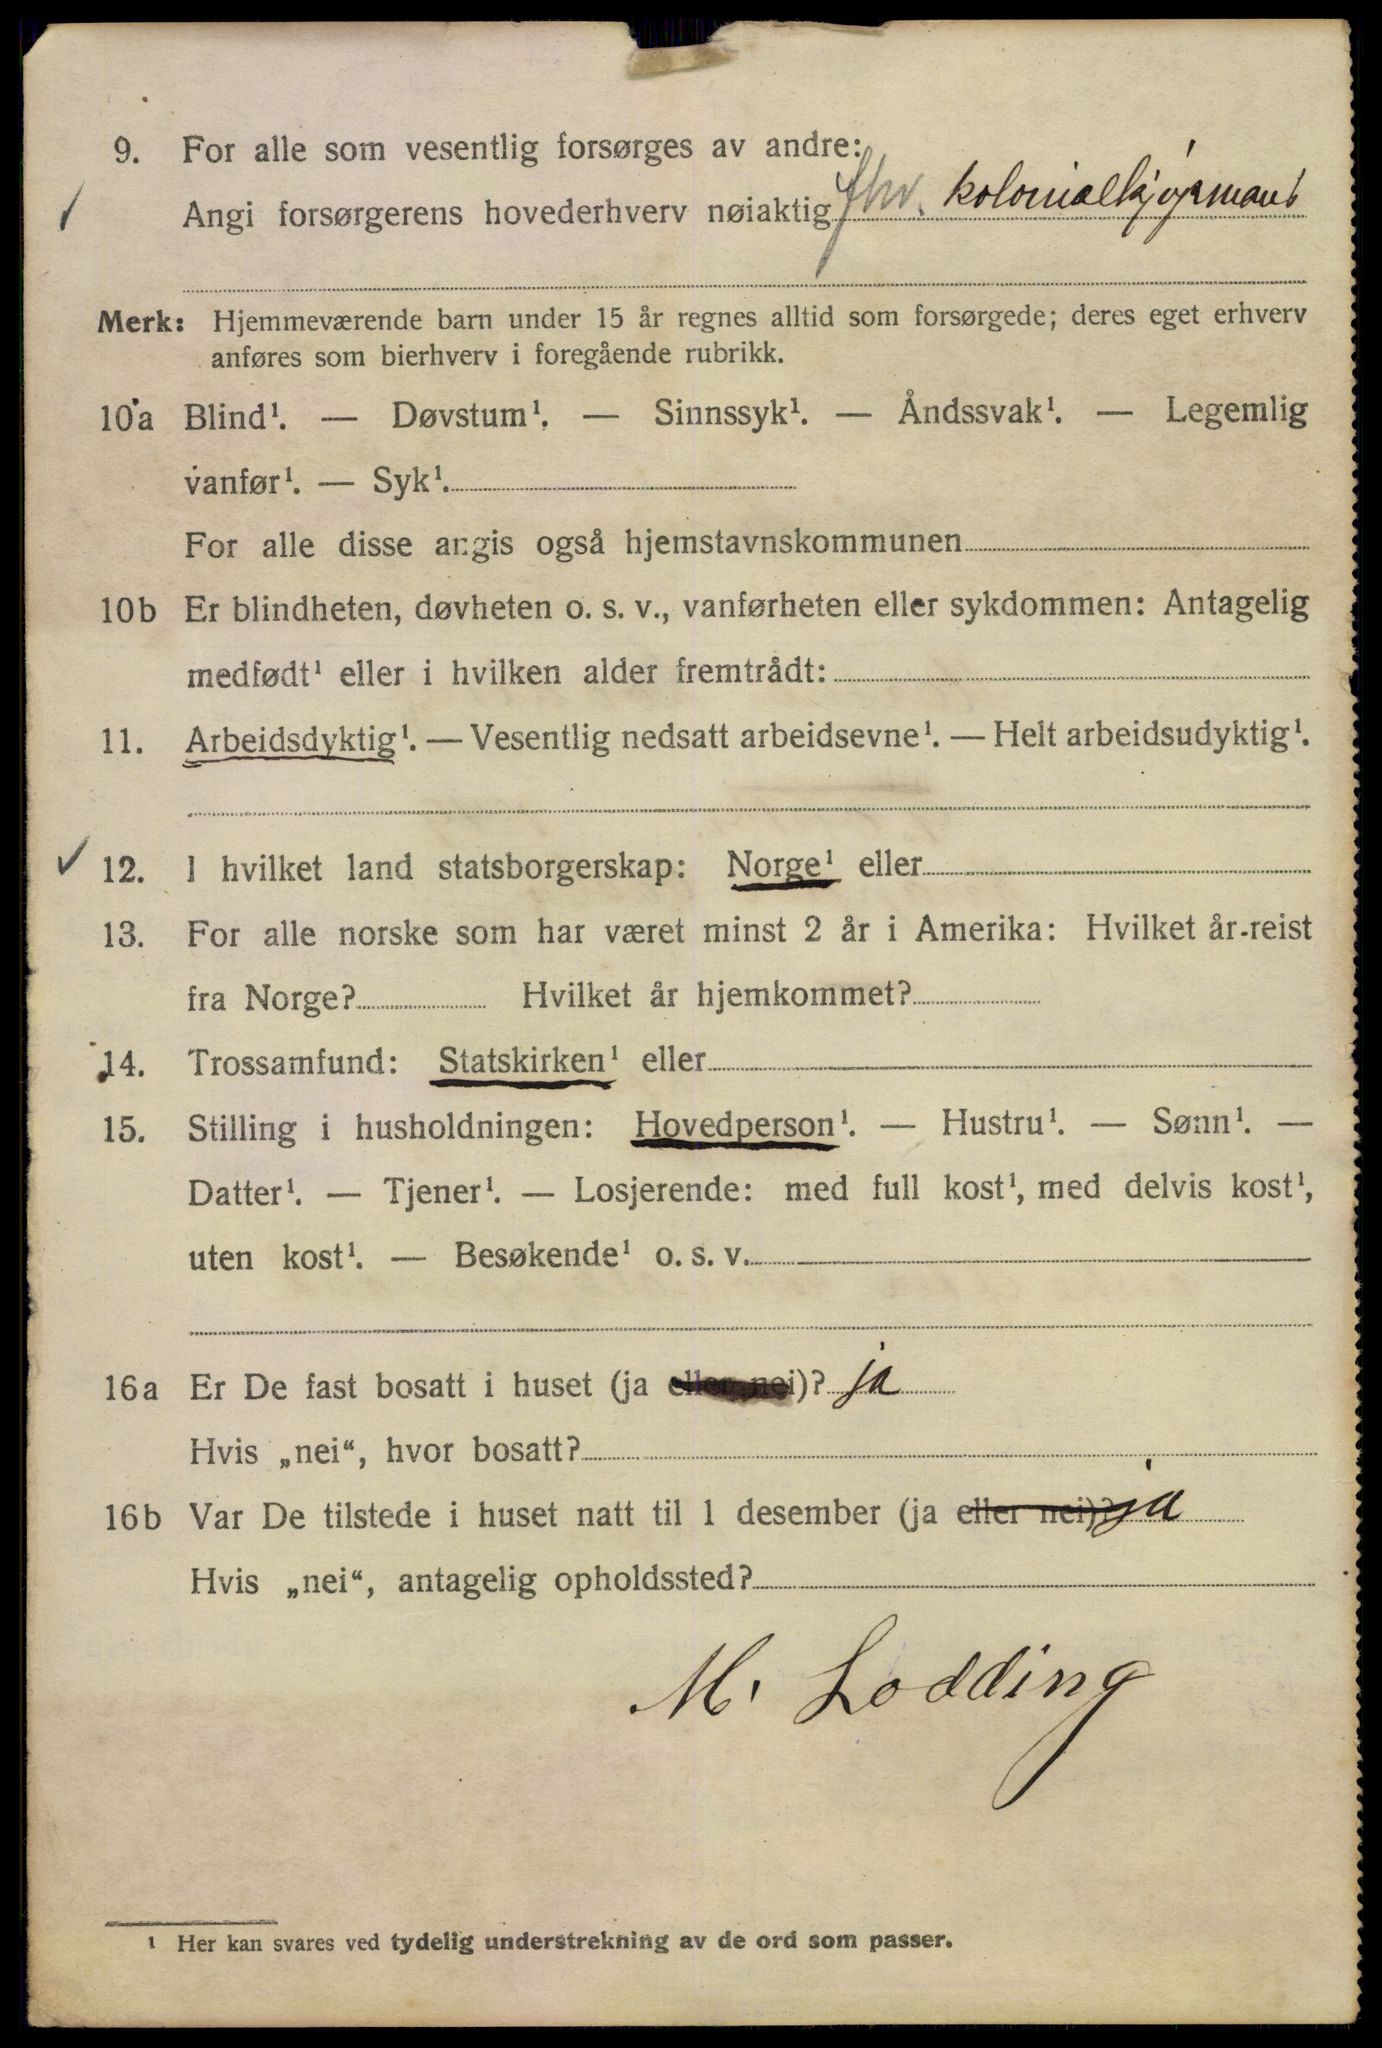 9. For alle som vesentlig forsørges av andre:
Angi forsørgerens hovederhverv nøiaktig fhv. kolonialkjøpmann
Merk: Hjemmeværende barn under 15 år regnes alltid som forsørgede; deres eget erhverv
anføres som bierhverv i foregående rubrikk.
10a Blind¹. — Døvstum¹. — Sinnssyk¹. — Åndssvak¹. — Legemlig
vanfør¹. — Syk¹.
For alle disse angis også hjemstavnskommunen
10b Er blindheten, døvheten o. s. v., vanførheten eller sykdommen: Antagelig
medfødt¹ eller i hvilken alder fremtrådt:
11. Arbeidsdyktig¹. — Vesentlig nedsatt arbeidsevne¹. — Helt arbeidsudyktig¹.
12. I hvilket land statsborgerskap: Norge¹ eller
13. For alle norske som har været minst 2 år i Amerika: Hvilket år reist
fra Norge? Hvilket år hjemkommet?
14. Trossamfund: Statskirken¹ eller
15. Stilling i husholdningen: Hovedperson¹. — Hustru¹. — Sønn¹. —
Datter¹. — Tjener¹. — Losjerende: med full kost¹, med delvis kost¹,
uten kost¹. — Besøkende¹ o. s. v.
16a Er De fast bosatt i huset (ja eller nei)? ja
Hvis „nei“, hvor bosatt?
16b Var De tilstede i huset natt til 1 desember (ja eller nei)? ja
Hvis „nei“, antagelig opholdssted?
M. Lodding
¹ Her kan svares ved tydelig understrekning av de ord som passer.